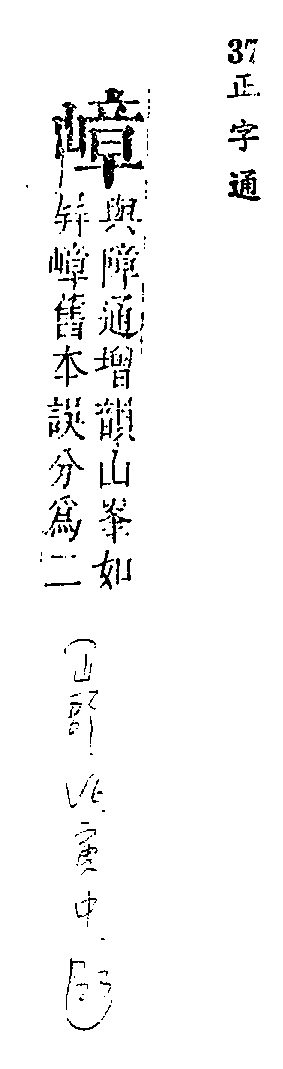 37
正字通
嶂
與障通增韻山峯如
屛嶂舊本誤分爲二
(山部 寅中